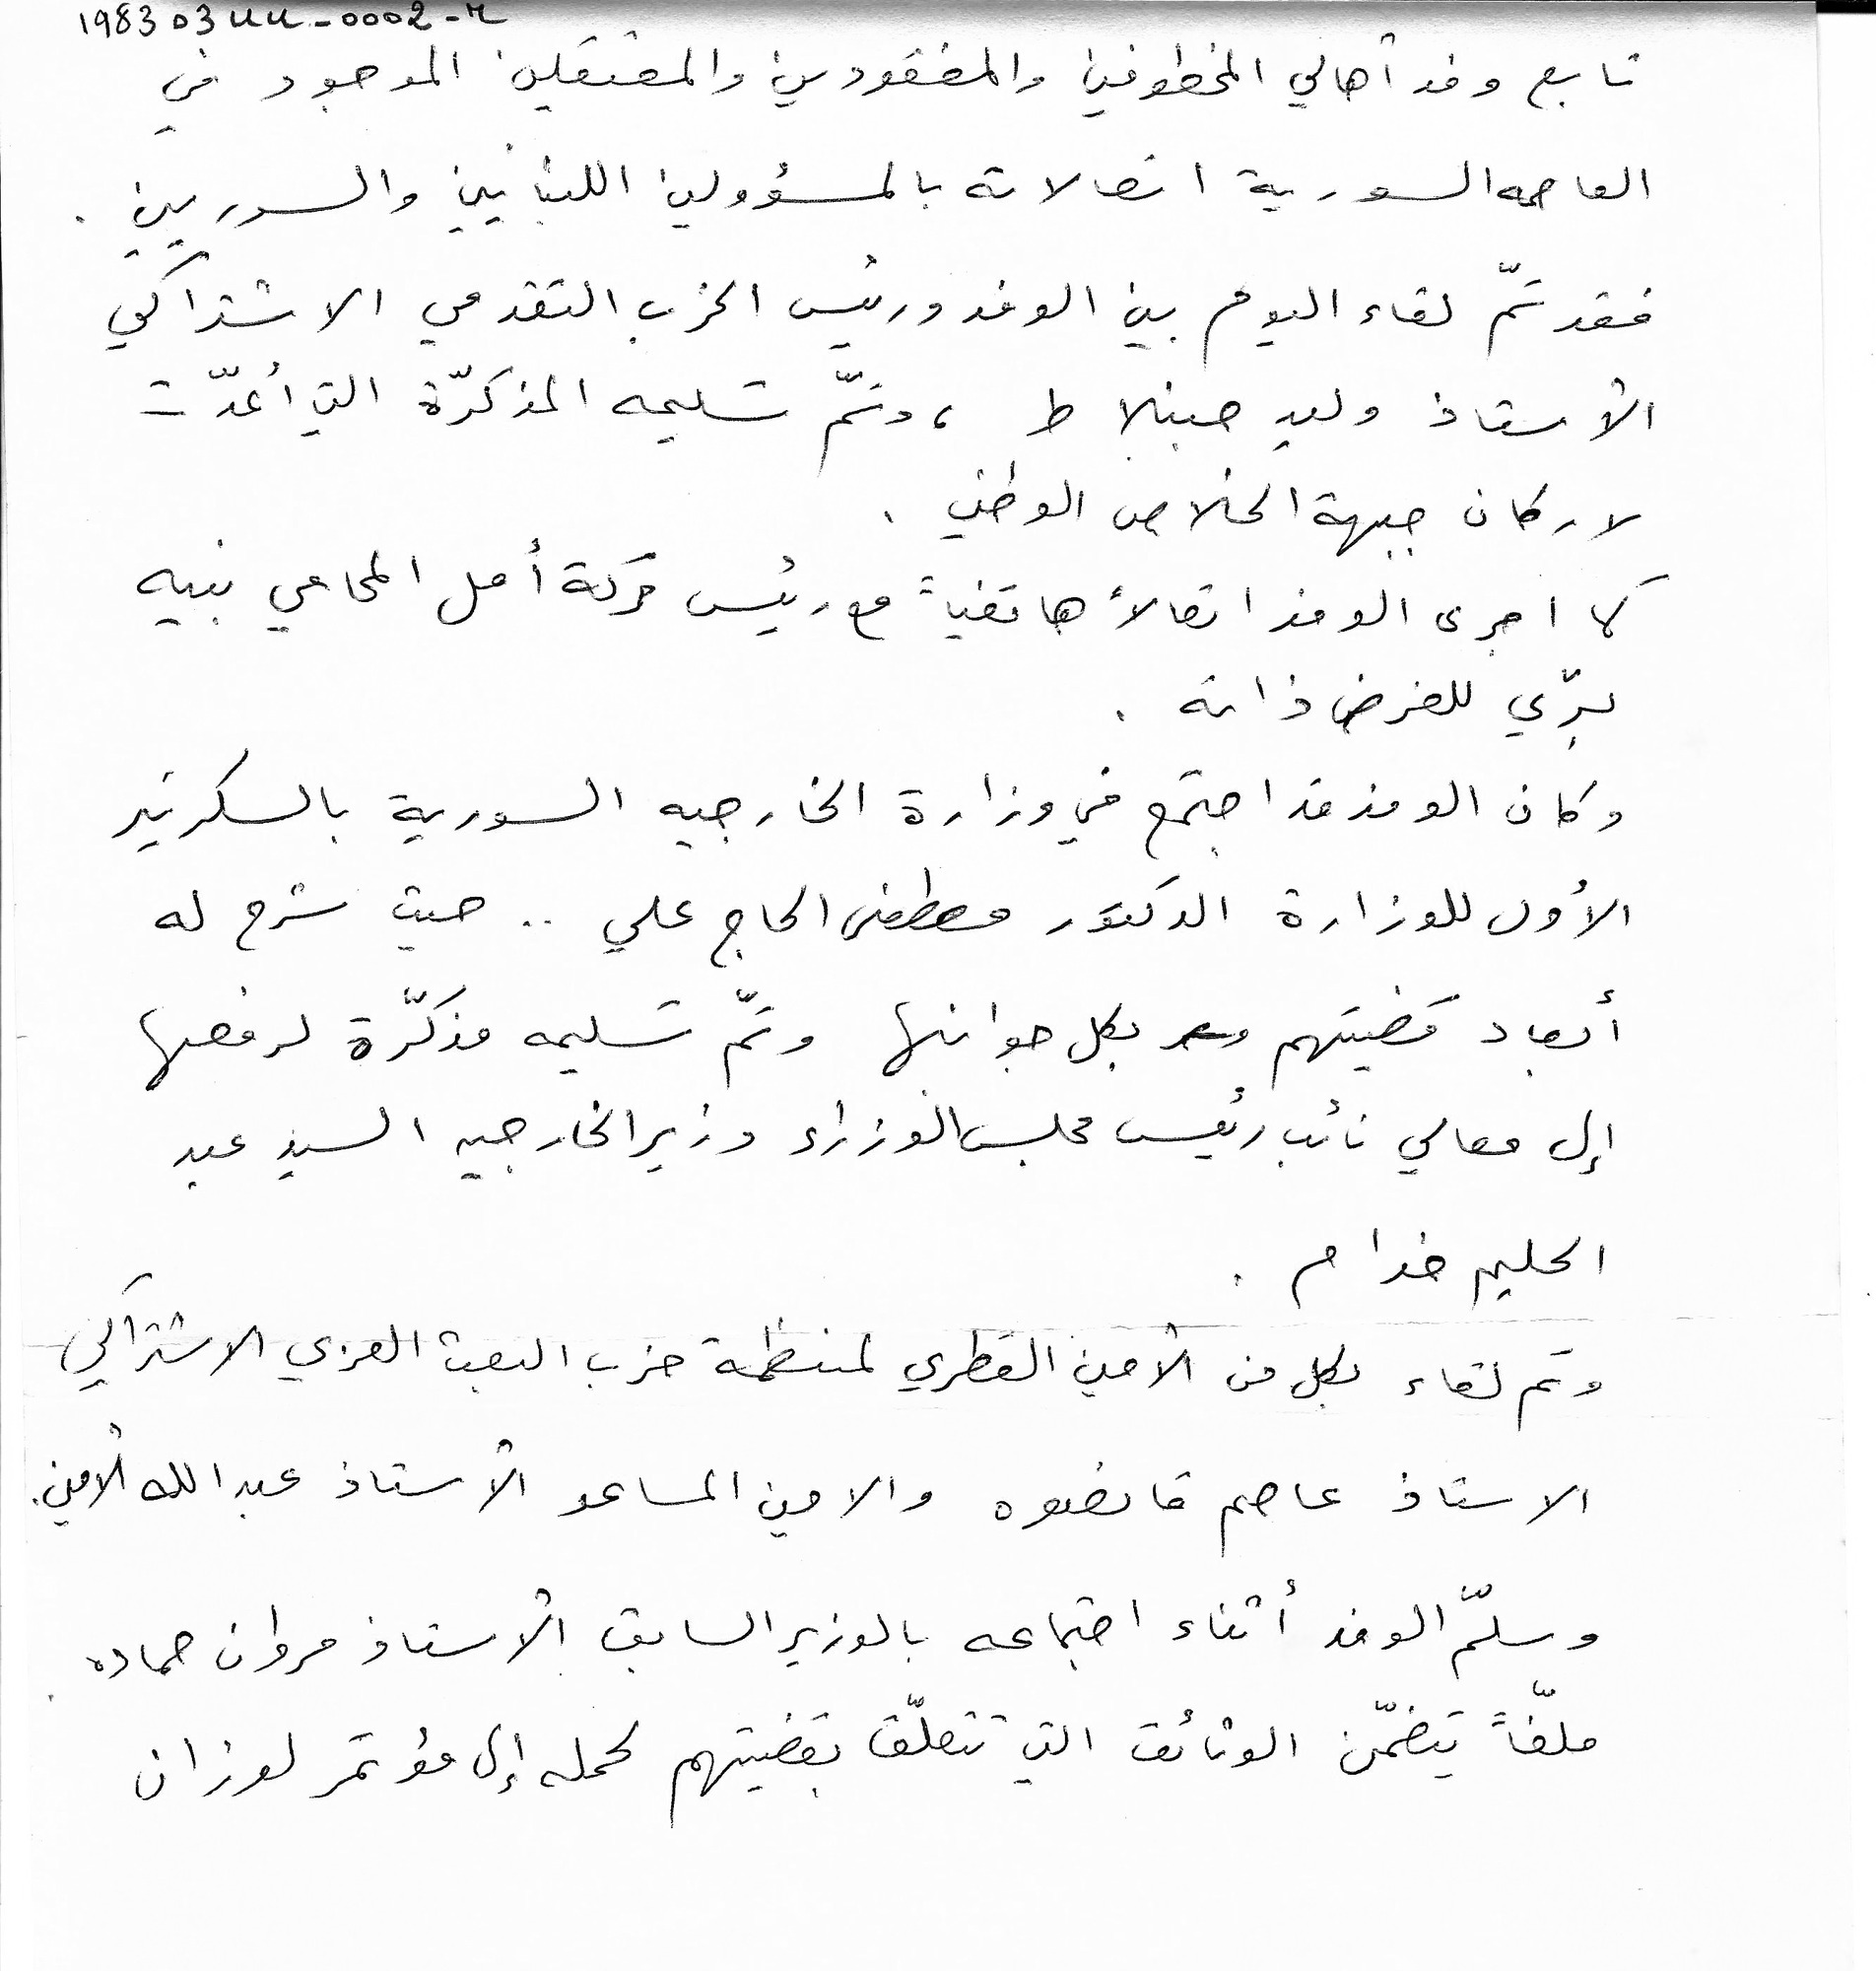 1983 03 uu-0002-r
تابع وفد أهالي المخطوفين والمفقودين والمعتقلين الموجود في
العاصمه السورية اتصالاته بالمسؤولين اللبنانيين والسوريين .
فقد تمّ لقاء اليوم بين الوفد ورئيس الحزب التقدمي الاشتراكي
الأستاذ وليد جنبلاط ، وتمّ تسليمه المذكرّة التي أعدّت
لاركان جبهة الخلاص الوطني .
كما اجرى الوفد اتصالاً هاتفياً مع رئيس حركة أمل المحامي نبيه
برّي للغرض ذاته .
وكان الوفد قد اجتمع في وزارة الخارجيه السورية بالسكرتير
الأول للوزارة الدكتور مصطفى الحاج علي .. حيث شرح له
أبعاد قضيتهم بكل جوانبها وتمّ تسليمه مذكّرة لرفعها
إلى معالي نائب رئيس مجلس الوزراء وزير الخارجيه السيد عبد
الحليم خدام .
وتم لقاء بكل من الأمين القطري لمنظمة حزب البعث العربي الاشتراكي
الاستاذ عاصم قانصوه والامين المساعد الأستاذ عبدالله الأمين.
وسلّم الوفد أثناء اجتماعه بالوزير السابق الأستاذ مروان حماده
ملفّاً يتضمّن الوثائق التي تتعلّق بقضيتهم لحمله إلى مؤتمر لوزان